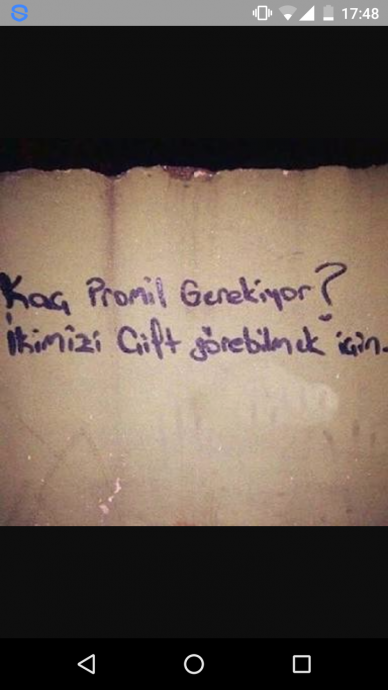 17:48
Kaç Promil Gerekiyor?
İkimizi Çift görebilmek için.